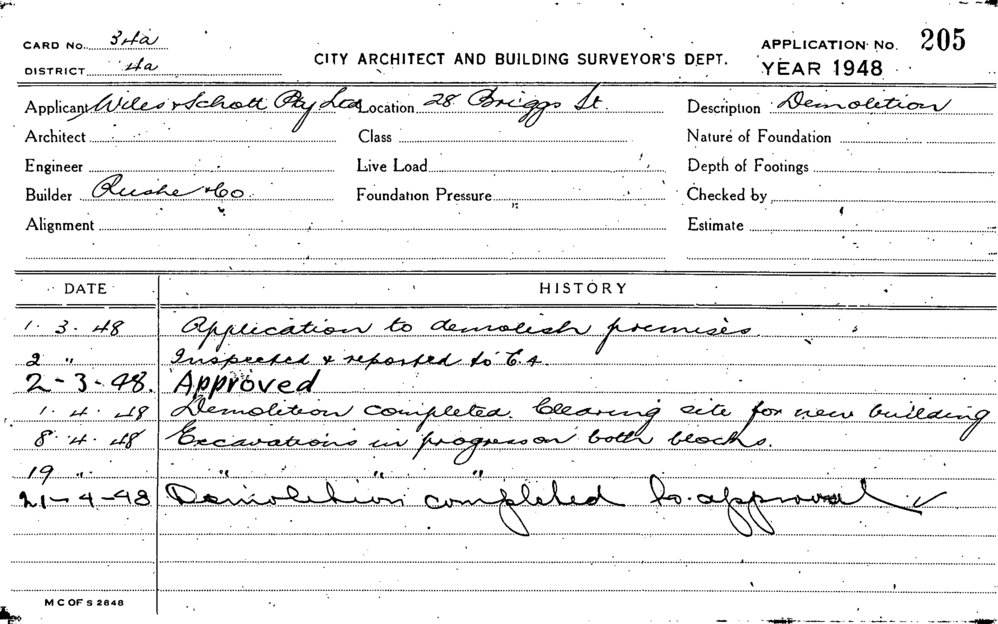 CARD No. 34a
DISTRICT 4a
CITY ARCHITECT AND BUILDING SURVEYOR'S DEPT.
APPLICATION No. 205
YEAR 1948
Applicant Wiles & Schott Pty Ltd Location 28 Briggs St. Description Demolition
Architect Class Nature of Foundation
Engineer Live Load Depth of Footings
Builder Rushe & Co. Foundation Pressure Checked by
Alignment Estimate
DATE HISTORY
1. 3. 48 Application to demolish premises
2 " Inspected & reported to C.A.
2-3-48. Approved
1. 4. 48 Demolition completed. Clearing site for new building
8. 4. 48 Excavations in progress on both blocks.
19 " " " "
21-4-48 Demolition completed to approval ✓
M C OF S 2848